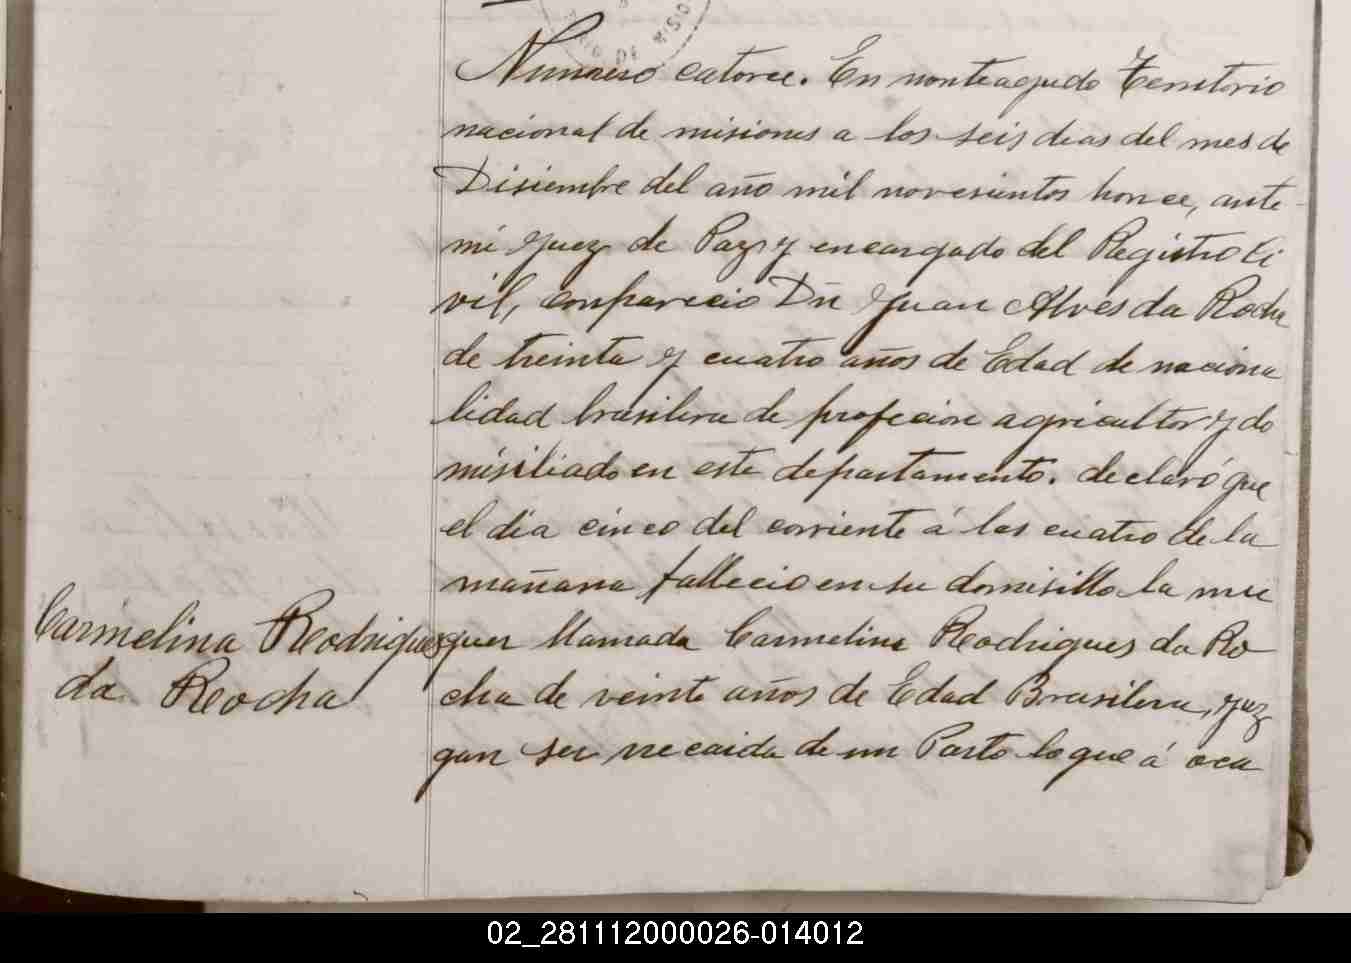 RIO DE MISIO
Numero catorce. En monteagudo Territorio
nacional de misiones a los seis dias del mes de
Disiembre del año mil novesientos honce, ante
mi Juez de Paz y encargado del Registro Ci
vil, comparecio Dn Juan Alves da Rocha
de treinta y cuatro años de Edad de naciona
lidad brasilera de profecion agricultor y do
misiliado en este departamento. declaró que
el dia cinco del corriente á las cuatro de la
mañana fallecio en su domisillo la mu
Carmelina Rodrigues
guer llamada Carmelina Rodrigues da Ro
da Rocha
cha de veinte años de Edad Brasilera, juz
gan ser recaida de un Parto lo que á oca
02_281112000026-014012